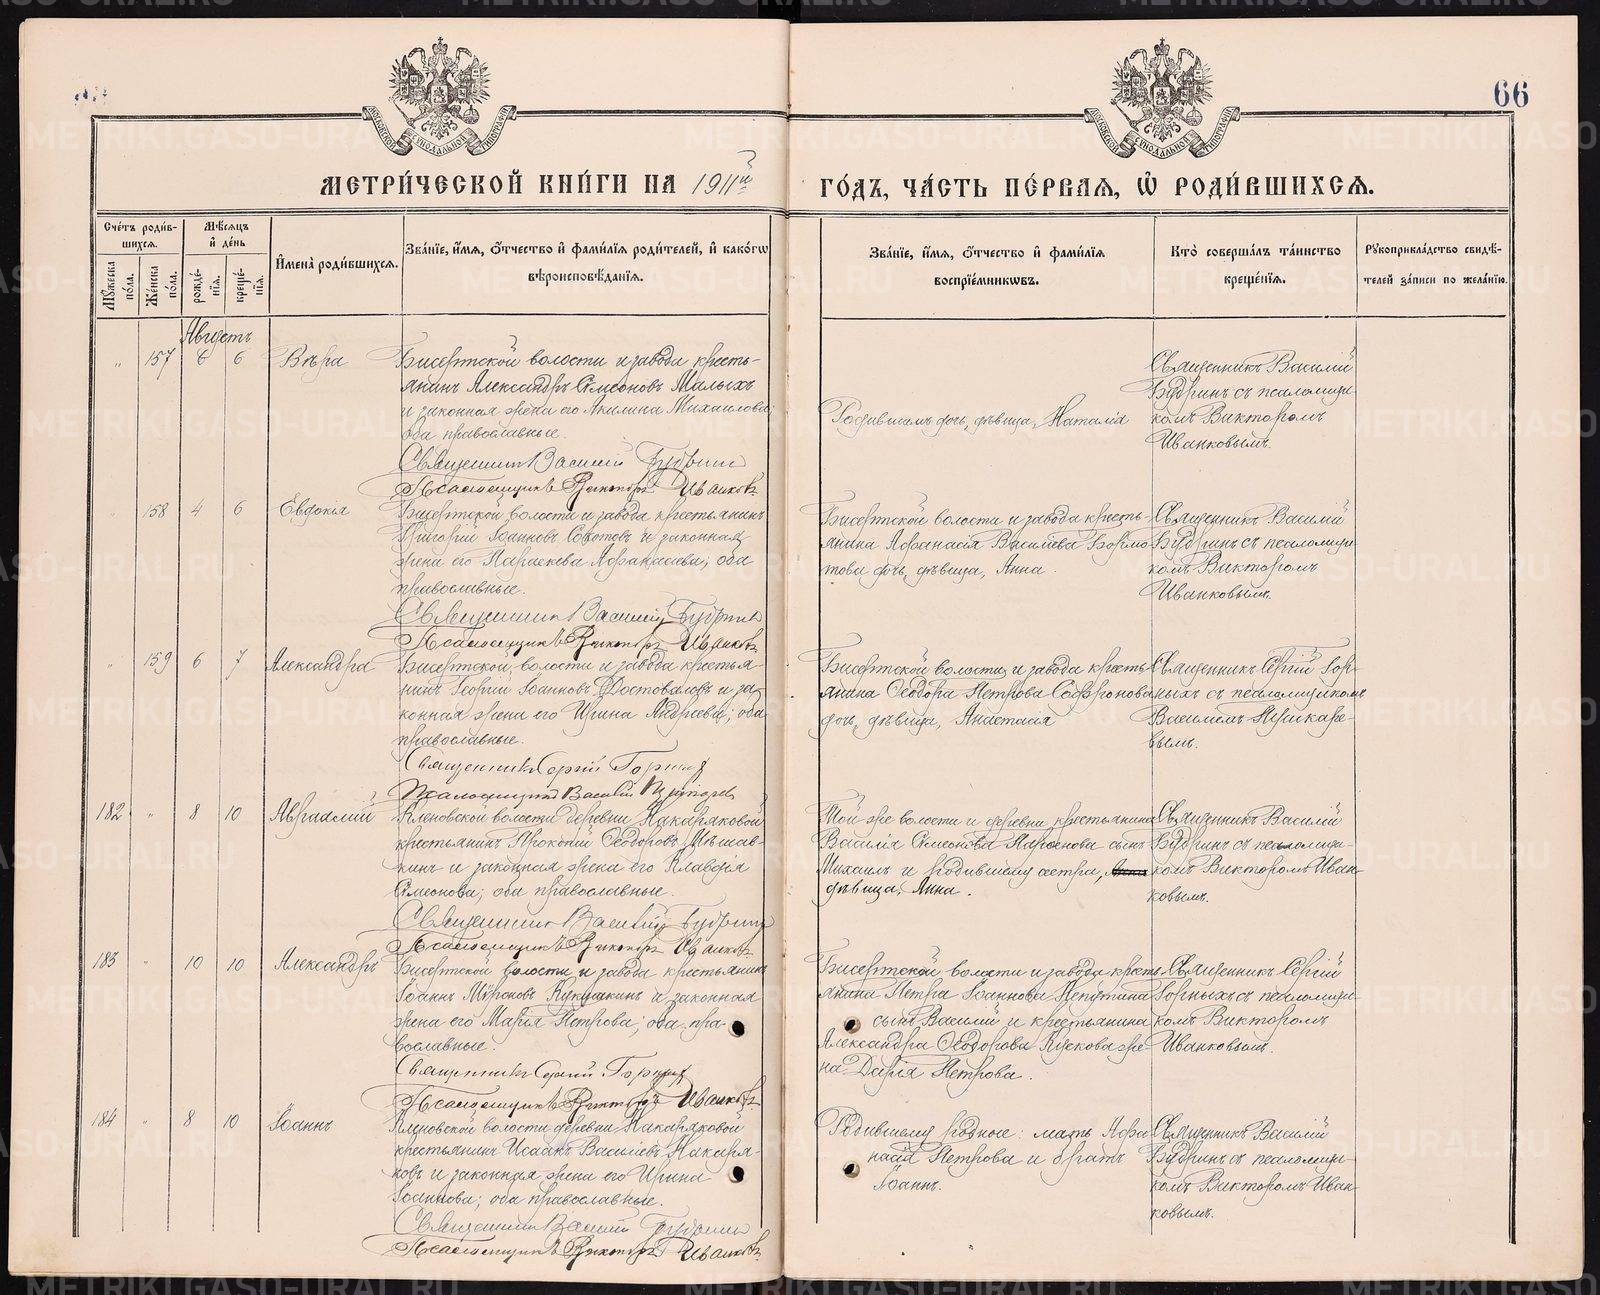 66
МОСКОВСКОЙ СѴНОДАЛЬНОЙ ТИПОГРАФІИ
МОСКОВСКОЙ СѴНОДАЛЬНОЙ ТИПОГРАФІИ
МЕТРИ́ЧЕСКОЙ КНИ́ГИ НА 1911й ГО́ДЪ, ЧА́СТЬ ПЕ́РВАѦ, Ѡ҆ РОДИ́ВШИХСѦ.
Сче́тъ роди́в-
шихсѧ.
Мѣ́сѧцъ
и҆ де́нь
Мꙋ́жеска
по́ла.
Же́нска
по́ла.
рожде́-
нїѧ.
креще́-
нїѧ.
И҆мена̀ роди́вшихсѧ.
Зва́нїе, и҆́мѧ, ѻ҆́тчество и҆ фами́лїѧ роди́телей, и҆ како́гѡ
вѣроисповѣ́данїѧ.
Зва́нїе, и҆́мѧ, ѻ҆́тчество и҆ фами́лїѧ
воспрїе́мникѡвъ.
Кто̀ соверша́лъ та́инство
креще́нїѧ.
Рꙋкоприкла́дство свидѣ́-
телей за́писи по жела́нїю.
Августъ
„ 157 6 6 Вѣра
Бисертской волости и завода кресть-
янинъ Александръ Симеоновъ Малыхъ
и законная жена его Акилина Михаилова;
оба православные.
Священникъ Василий Будринъ
Псаломщикъ Викторъ Иванковъ
Родившейся дочь, дѣвица, Наталія
Священникъ Василій
Будринъ съ псаломщи-
комъ Викторомъ
Иванковымъ.
„ 158 4 6 Евдокія
Бисертской волости и завода крестьянинъ
Григорій Іоанновъ и законная
жена его Параскева Аѳанасіева; оба
православные.
Священникъ Василій Будринъ
Псаломщикъ Викторъ Иванковъ
Бисертской волости и завода кресть-
янина Аѳанасія Василіева Бормо-
това дочь, дѣвица, Анна.
Священникъ Василій
Будринъ съ псаломщи-
комъ Викторомъ
Иванковымъ.
„ 159 6 7 Александра
Бисертской волости и завода крестья-
нинъ Георгій Іоанновъ Ѳостоваловъ и за-
конная жена его Ирина Андреева; оба
православные.
Священникъ Сергій Горныхъ
Псаломщикъ Василій
Бисертской волости и завода кресть-
янина Ѳеодора Петрова Софронова
дочь, дѣвица, Анастасія
Священникъ Сергій Гор-
ныхъ съ псаломщикомъ
Василіемъ
вымъ.
182 „ 8 10 Авраамій
Кленовской волости деревни Накаряковой
крестьянинъ Прокопій Ѳеодоровъ
кинъ и законная жена его Клавдія
Симеонова; оба православные.
Священникъ Василій Будринъ
Псаломщикъ Викторъ Иванковъ
Той же волости и деревни крестьянина
Василія Симеонова Парѳенова сынъ
Михаилъ и родившему сестра,
дѣвица, Анна.
Священникъ Василій
Будринъ съ псаломщи-
комъ Викторомъ Иван-
ковымъ.
183 „ 10 10 Александръ
Бисертской волости и завода крестьянинъ
Іоаннъ Мѵроновъ Кукушкинъ и законная
жена его Марія Петрова; оба пра-
вославные.
Священникъ Сергій Горныхъ
Псаломщикъ Викторъ Иванковъ
Бисертской волости и завода кресть-
янина Петра Іоаннова Пепутина
сынъ Василій и крестьянина
Александра Ѳеодорова Кускова же-
на Дарія Петрова.
Священникъ Сергій
Горныхъ съ псаломщи-
комъ Викторомъ
Иванковымъ.
184 „ 8 10 Іоаннъ
Кленовской волости деревни Накаряковой
крестьянинъ Исаакъ Василіевъ Накаря-
ковъ и законная жена его Ирина
Іоаннова; оба православные.
Священникъ Василій Будринъ
Псаломщикъ Викторъ Иванковъ
Родившему родные: мать Аѳа-
насія Петрова и братъ
Іоаннъ.
Священникъ Василій
Будринъ съ псаломщи-
комъ Викторомъ Иван-
ковымъ.
METRIKI.GASO-URAL.RU